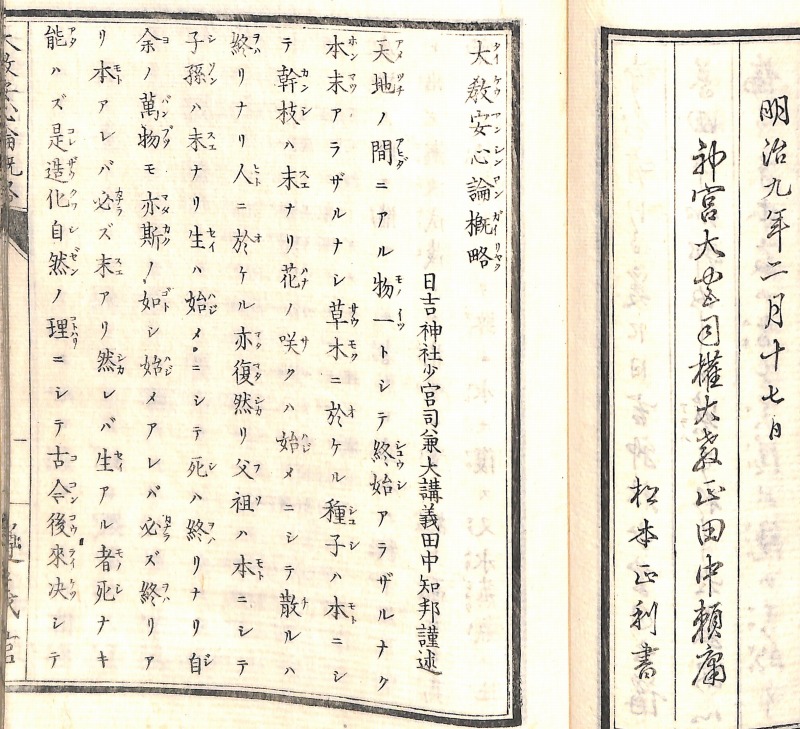 明治九年二月十七日
神宮大宮司權大教正田中頼庸
松本正利書
大教安心論概略
日吉神社少宮司兼大講義田中知邦謹述
天地ノ間ニアル物一トシテ終始アラザルナク
本末アラザルナシ草木ニ於ケル種子ハ本ニシ
テ幹枝ハ末ナリ花ノ咲クハ始メニシテ散ルハ
終リナリ人ニ於ケル亦復然リ父祖ハ本ニシテ
子孫ハ末ナリ生ハ始メニシテ死ハ終リナリ自
余ノ萬物モ亦斯ノ如シ始メアレバ必ズ終リア
リ本アレバ必ズ末アリ然レバ生アル者死ナキ
能ハズ是造化自然ノ理ニシテ古今後來决シテ
大教安心論概略
一